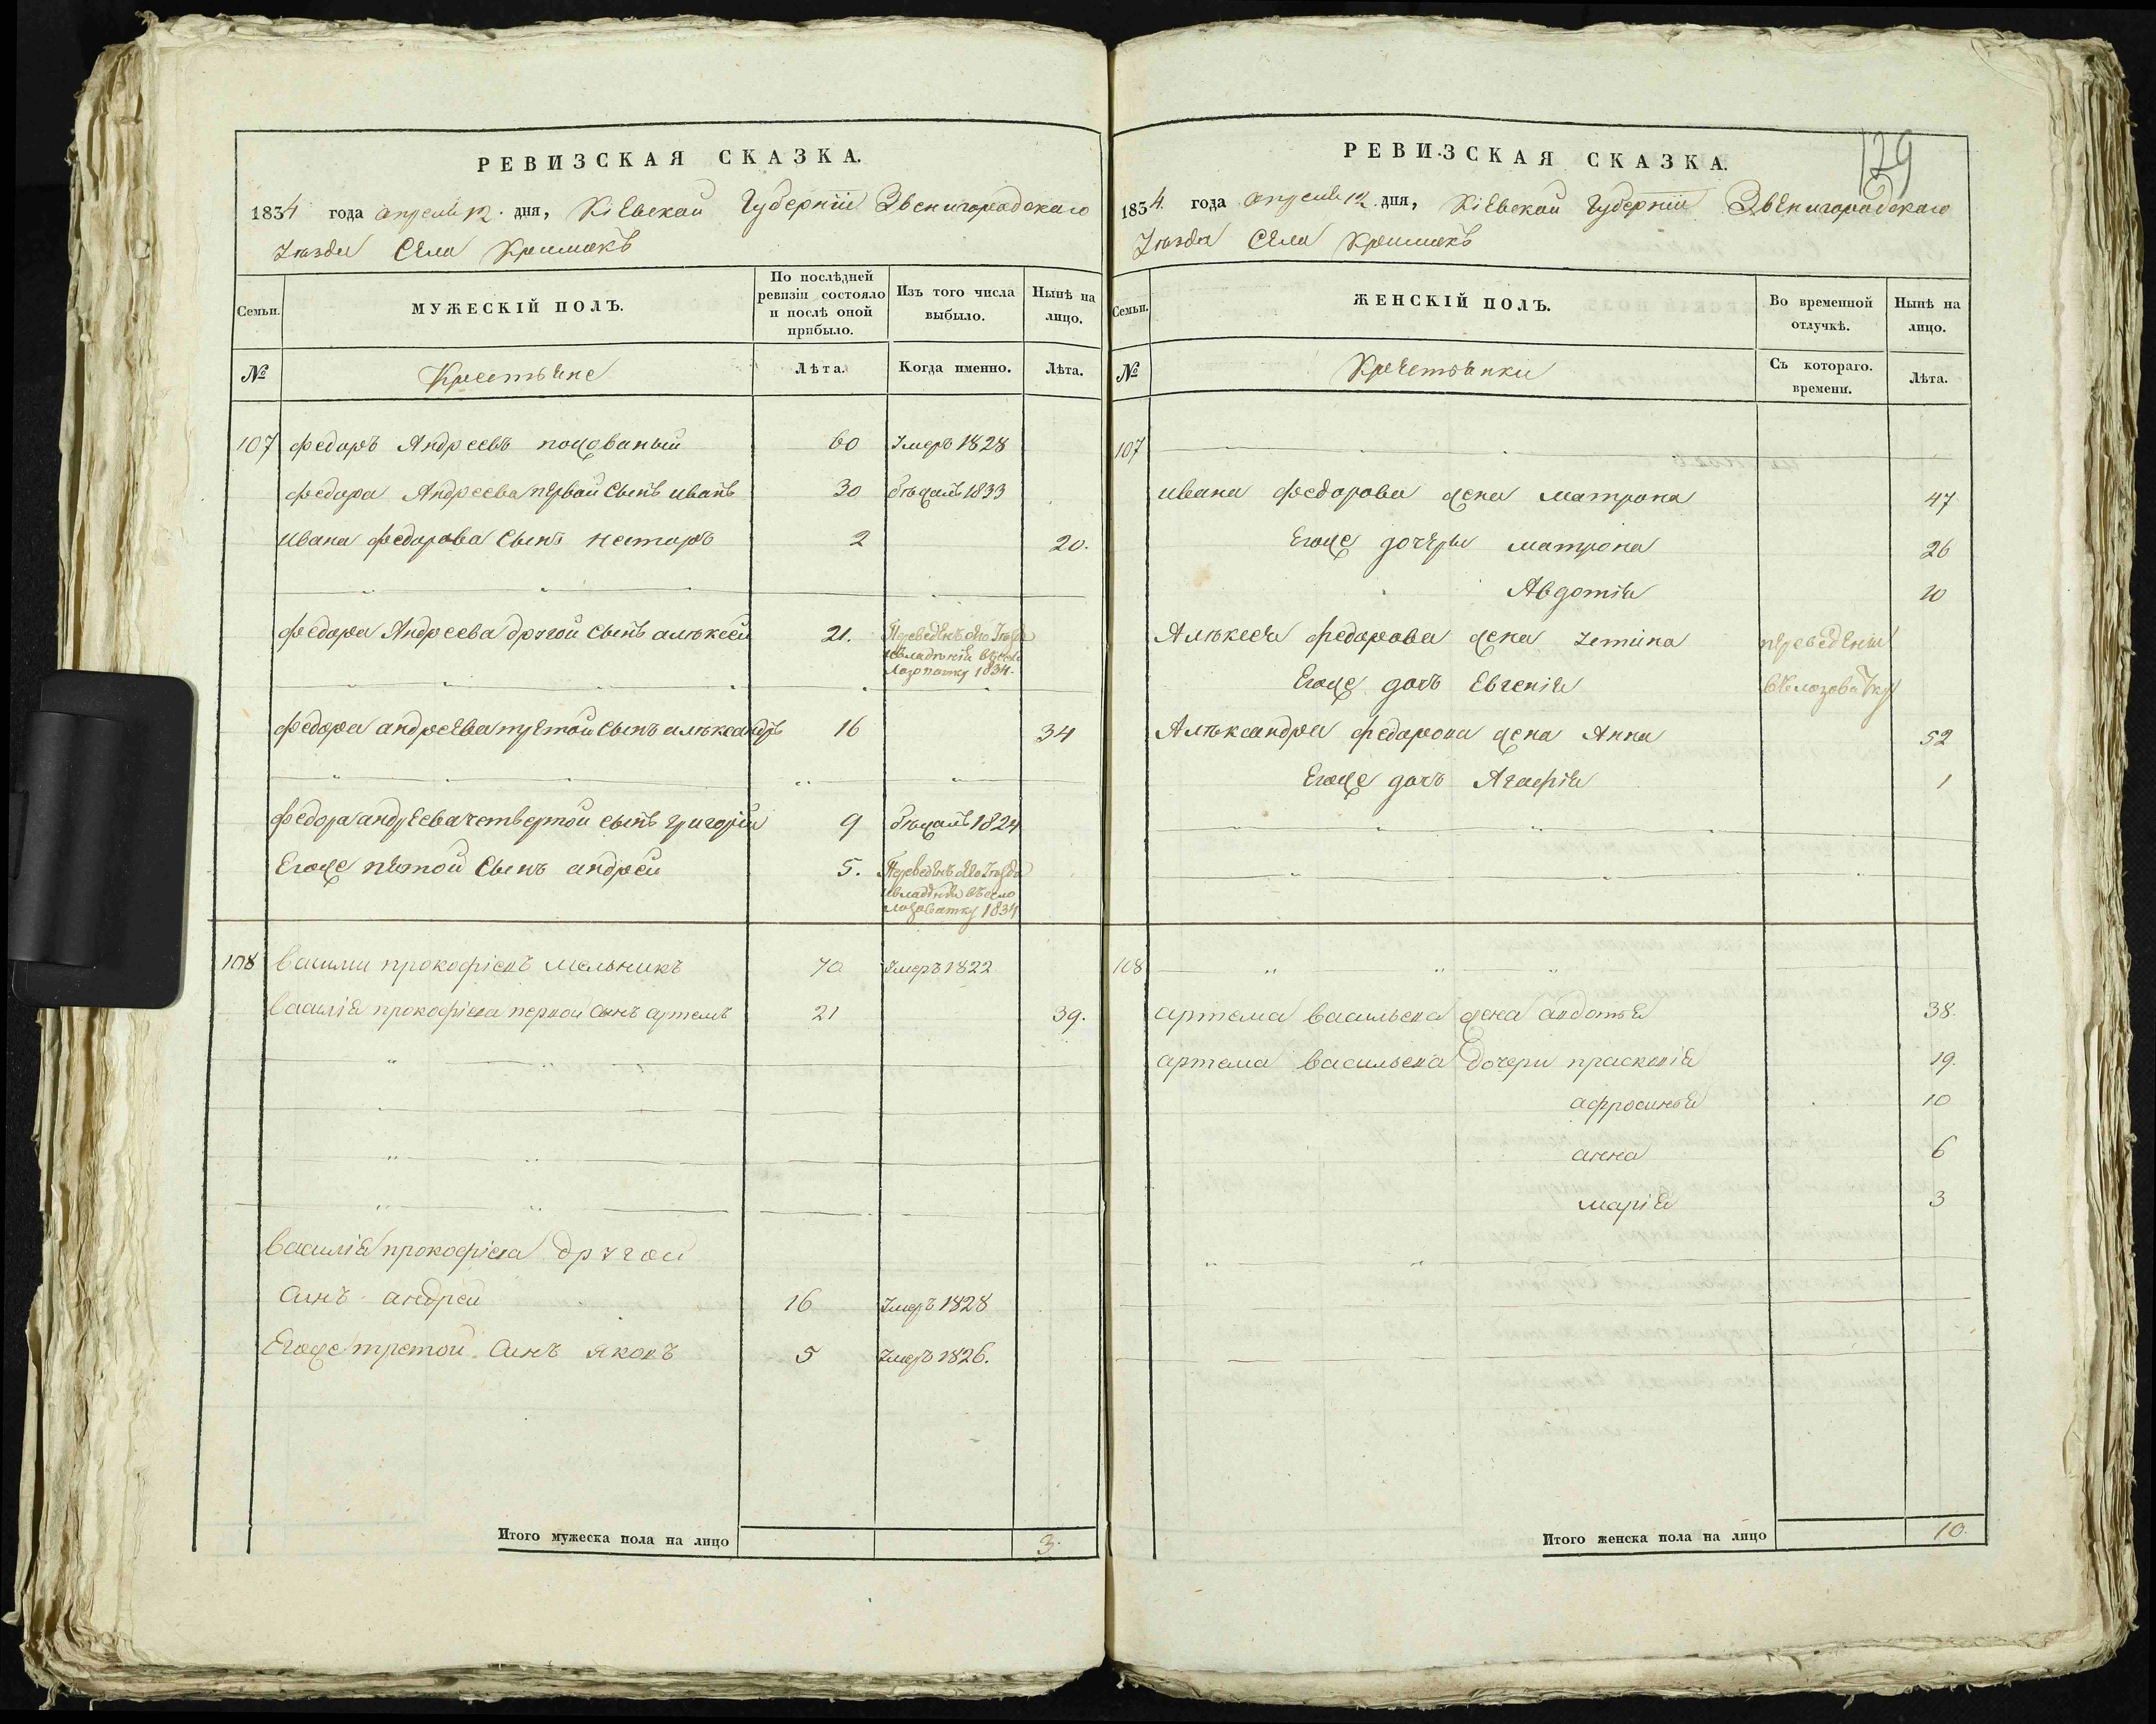 РЕВИЗСКАЯ СКАЗКА.
1834 года апреля 12. дня, Кіевской Губерніи Звенигородскаго
Уѣзда Села
Семьи.
МУЖЕСКІЙ ПОЛЪ.
По послѣдней ревизіи состояло и послѣ оной прибыло.
Изъ того числа выбыло.
Нынѣ на лицо.
№
Крестьяне
Лѣта.
Когда именно.
Лѣта.
107 федоръ Андреевъ 60 Умеръ 1828
федора Андреева первой сынъ иванъ 30 бѣжалъ 1833
ивана федорова сынъ несторъ 2 20.
федора Андреева другой сынъ алѣксей 21. Переведенъ Уѣзда
1834.
федора андреева третой сынъ алѣксандръ 16 34
федора андреева четвертой сынъ григорій 9 бѣжалъ 1824
Егоже пятой сынъ андрей 5. Переведенъ Уѣзда
въ село
лозоватку 1834
108 василии прокофіевъ мельникъ 70 Умеръ 1822
василія прокофіева первой сынъ артемъ 21 39.
василія прокофіева другои
сынъ андреи 16 Умеръ 1828
Егоже третои сынъ яковъ 5 Умеръ 1826.
Итого мужеска пола на лицо 3.
129
РЕВИЗСКАЯ СКАЗКА.
1834 года апреля 12 дня, Кіевской Губерніи Звенигородскаго
Уѣзда Села
Семьи.
ЖЕНСКІЙ ПОЛЪ.
Во временной отлучкѣ.
Нынѣ на лицо.
№
Крестьянки
Съ котораго. времени.
Лѣта.
107
ивана федорова жена матрона 47
Егоже дочеры матрона 26
Авдотія 20
Алѣксея федорова жена переведены
Егоже дочъ Евгенія
Алѣксандра федорова жена Анна 52
Егоже дочъ Агафія 1
108
артема васильева жена авдотья 38.
артема васильева дочери прасковія 19.
афросинья 10
анна 6
марія 3
Итого женска пола на лицо 10.